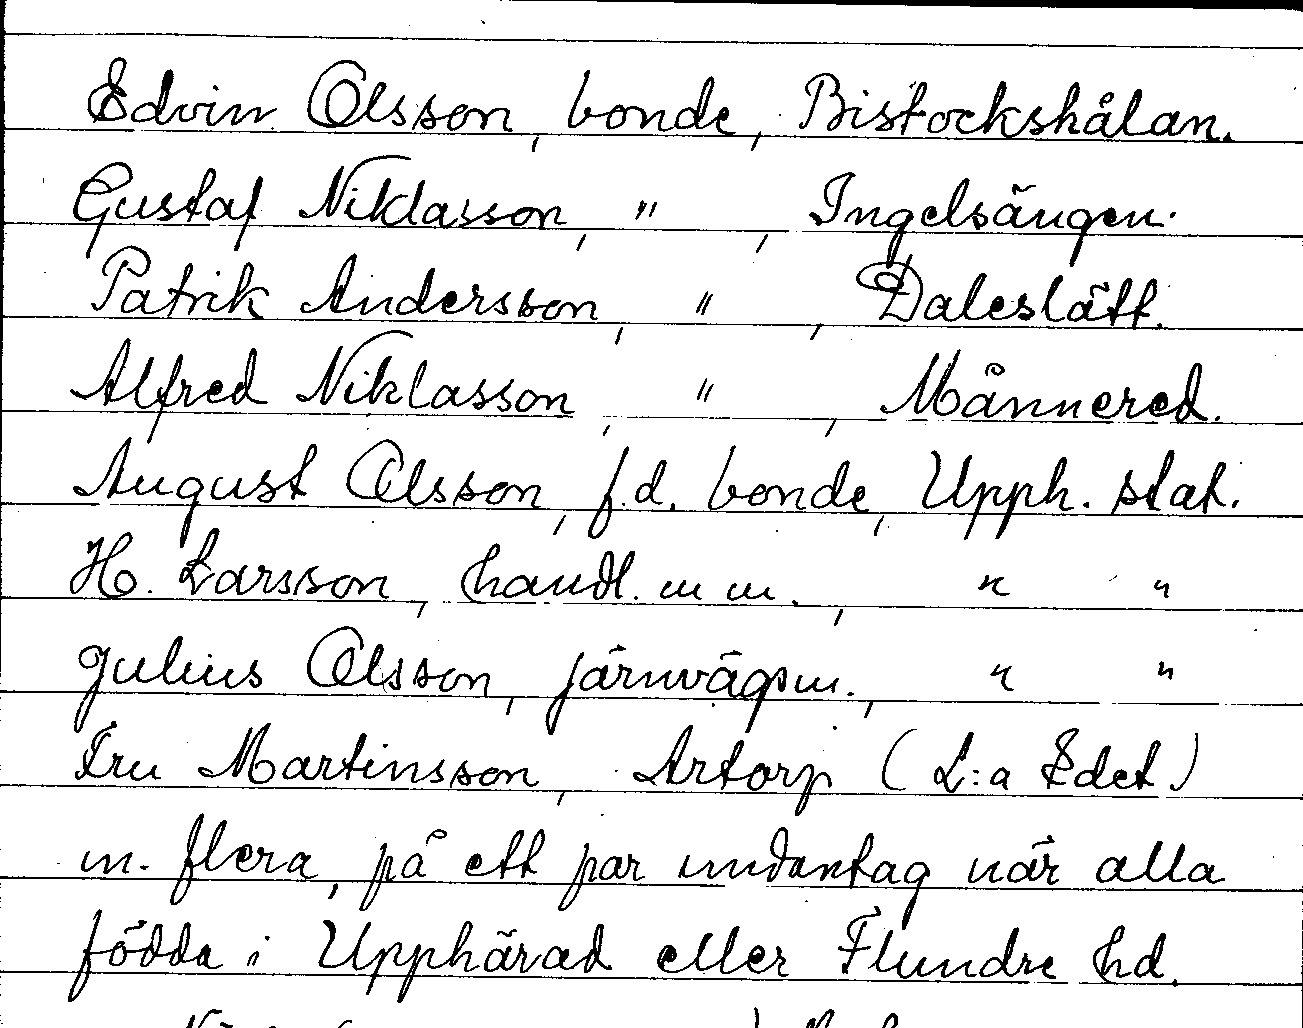 Edvin Olsson, bonde, Bistockshålan.
Gustaf Niklasson, " , Ingelsängen.
Patrik Andersson, " , Daleslätt.
Alfred Niklasson, " , Månnered.
August Olsson, f.d. bonde, Upph. stat.
H. Larsson, handl. m m., " "
Julius Olsson, järnvägsm., " "
Fru Martinsson, Artorp (L:a Edet)
m. flera, på ett par undantag när alla
födda i Upphärad eller Flundre hd.